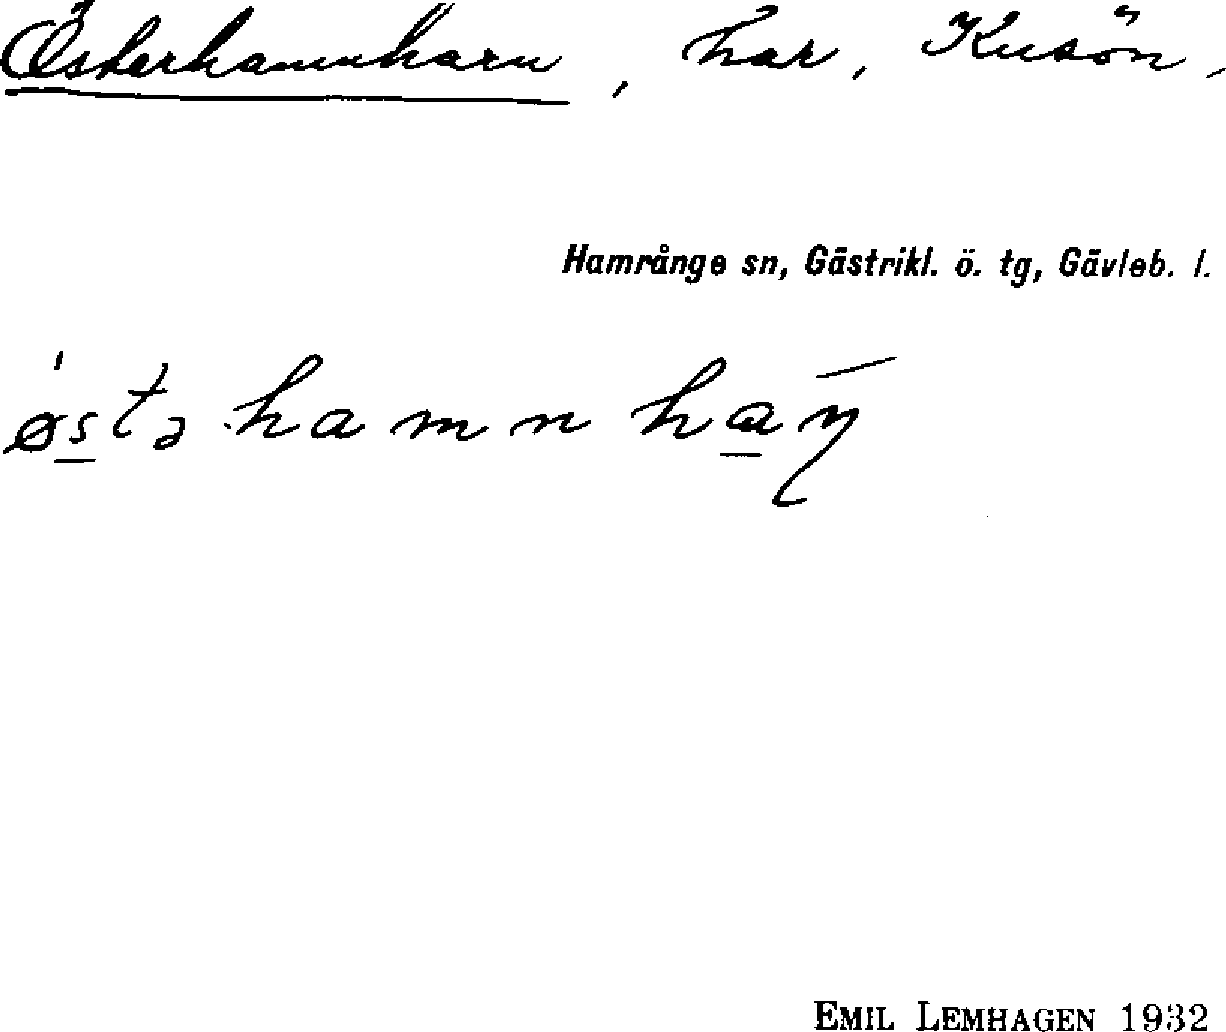 Österhamnharn, har, Kusön,
Hamrånge sn, Gästrikl. ö. tg, Gävleb. l.
østə hamn haɳ
EMIL LEMHAGEN 1932